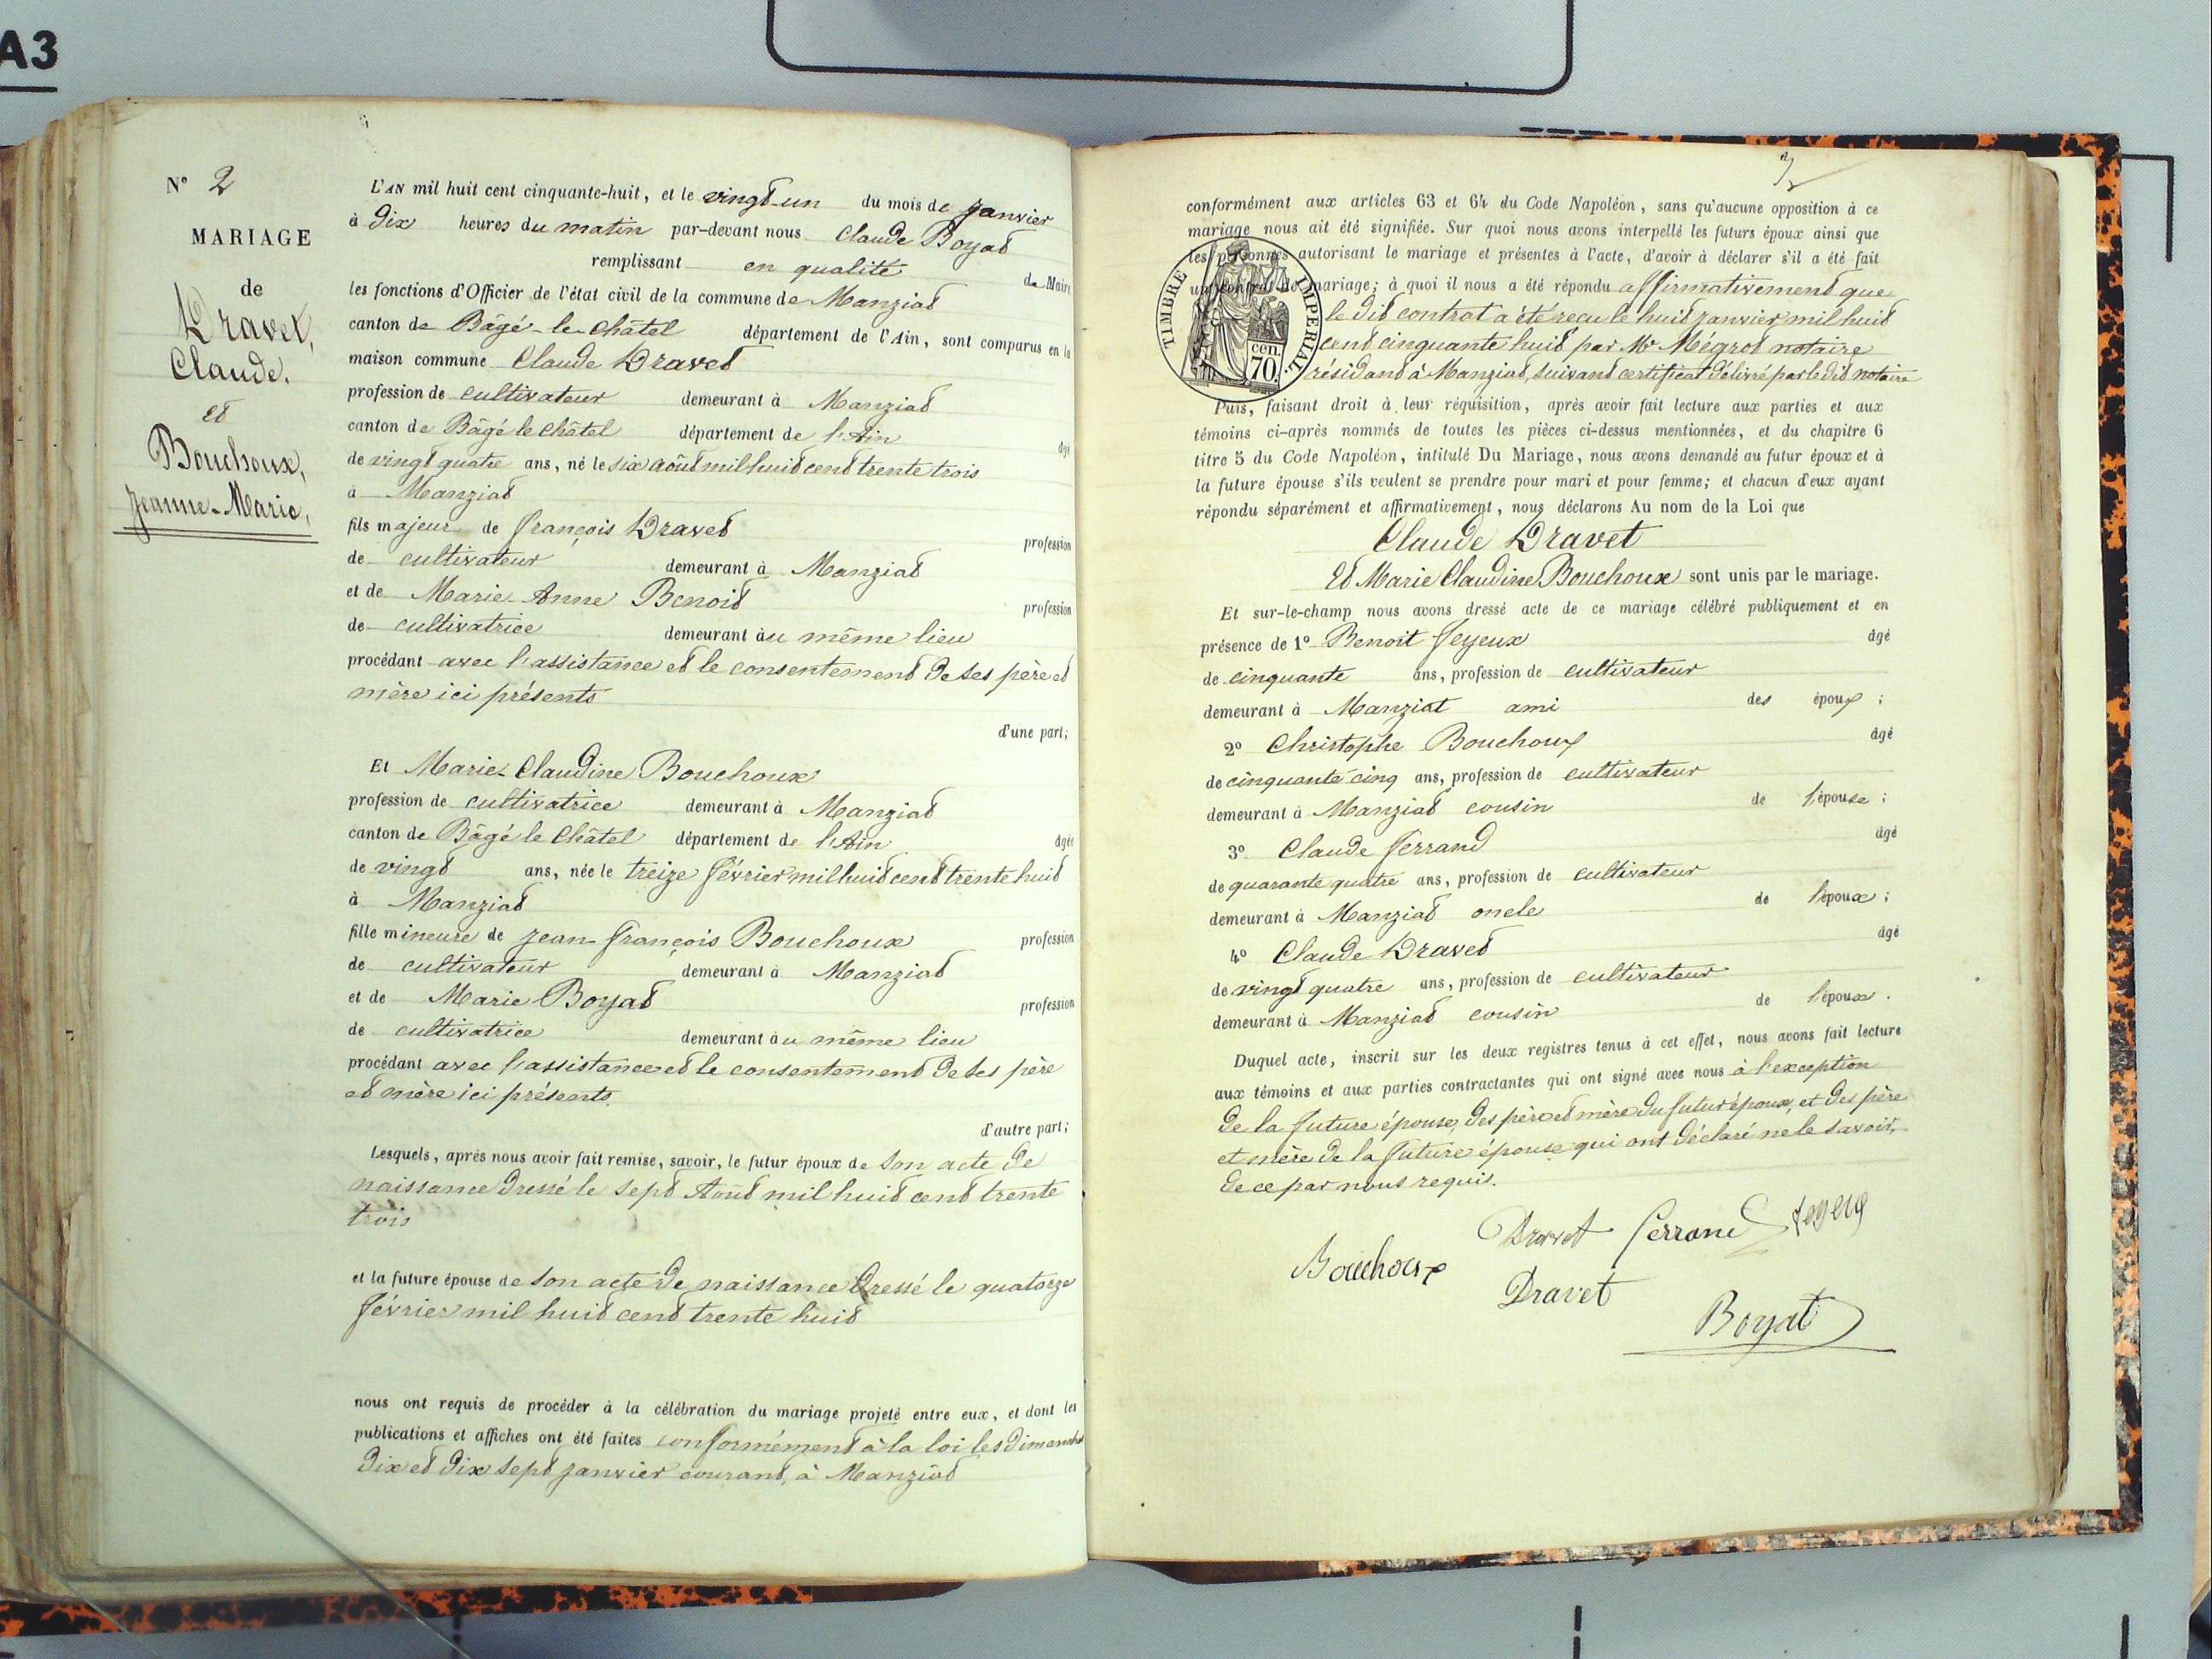 A3
N° 2
MARIAGE
de
Dravet,
Claude.
et
Bouchoux,
Jeanne-Marie,
L'AN mil huit cent cinquante-huit, et le vingt-un du mois de Janvier
à dix heures du matin par-devant nous Claude Boyat
remplissant en qualité de Maire
les fonctions d'Officier de l'état civil de la commune de Manziat
canton de Bâgé-le-Châtel département de l'Ain, sont comparus en la
maison commune Claude Dravet
profession de cultivateur demeurant à Manziat
canton de Bâgé le Châtel département de l'Ain âgé
de vingt quatre ans, né le six août mil huit cent trente trois
à Manziat
fils majeur de françois Dravet profession
de cultivateur demeurant à Manziat
et de Marie-Anne Benoit profession
de cultivatrice demeurant au même lieu
procédant avec l'assistance et le consentement de ses père et
mère ici présents
d'une part;
Et Marie-Claudine Bouchoux
profession de cultivatrice demeurant à Manziat
canton de Bâgé le Châtel département de l'Ain âgée
de vingt ans, née le treize février mil huit cent trente huit
à Manziat
fille mineure de Jean-françois Bouchoux profession
de cultivateur demeurant à Manziat
et de Marie Boyat profession
de cultivatrice demeurant au même lieu
procédant avec l'assistance et le consentement de ses père
et mère ici présents.
d'autre part;
Lesquels, après nous avoir fait remise, savoir, le futur époux de son acte de
naissance dressé le sept Août mil huit cent trente
trois
et la future épouse de son acte de naissance dressé le quatorze
février mil huit cent trente huit
nous ont requis de procéder à la célébration du mariage projeté entre eux, et dont les
publications et affiches ont été faites conformément à la loi les dimanches
dix et dix sept janvier courant, à Manziat
conformément aux articles 63 et 64 du Code Napoléon, sans qu'aucune opposition à ce
mariage nous ait été signifiée. Sur quoi nous avons interpellé les futurs époux ainsi que
les personnes autorisant le mariage et présentes à l'acte, d'avoir à déclarer s'il a été fait
un contrat de mariage; à quoi il nous a été répondu affirmativement que
le dit contrat a été reçu le huit janvier mil huit
cent cinquante huit par Me Mégrot notaire
résidant à Manziat, suivant certificat délivré par le dit notaire
TIMBRE IMPERIAL
cen.
70.
Puis, faisant droit à leur réquisition, après avoir fait lecture aux parties et aux
témoins ci-après nommés de toutes les pièces ci-dessus mentionnées, et du chapitre 6
titre 5 du Code Napoléon, intitulé Du Mariage, nous avons demandé au futur époux et à
la future épouse s'ils veulent se prendre pour mari et pour femme; et chacun d'eux ayant
répondu séparément et affirmativement, nous déclarons Au nom de la Loi que
Claude Dravet
Et Marie Claudine Bouchoux sont unis par le mariage.
Et sur-le-champ nous avons dressé acte de ce mariage célébré publiquement et en
présence de 1° Benoit feyeux âgé
de cinquante ans, profession de cultivateur
demeurant à Manziat ami des époux;
2° Christophe Bouchoux âgé
de cinquante cinq ans, profession de cultivateur
demeurant à Manziat cousin de l'épouse;
3° Claude ferrand âgé
de quarante quatre ans, profession de cultivateur
demeurant à Manziat oncle de l'époux;
4° Claude Dravet âgé
de vingt quatre ans, profession de cultivateur
demeurant à Manziat cousin de l'époux.
Duquel acte, inscrit sur les deux registres tenus à cet effet, nous avons fait lecture
aux témoins et aux parties contractantes qui ont signé avec nous à l'exception
de la future épouse, des père et mère du futur époux, et des père
et mère de la future épouse qui ont déclaré ne le savoir,
de ce par nous requis.
Dravet ferrand feyeux
Bouchoux
Dravet
Boyat